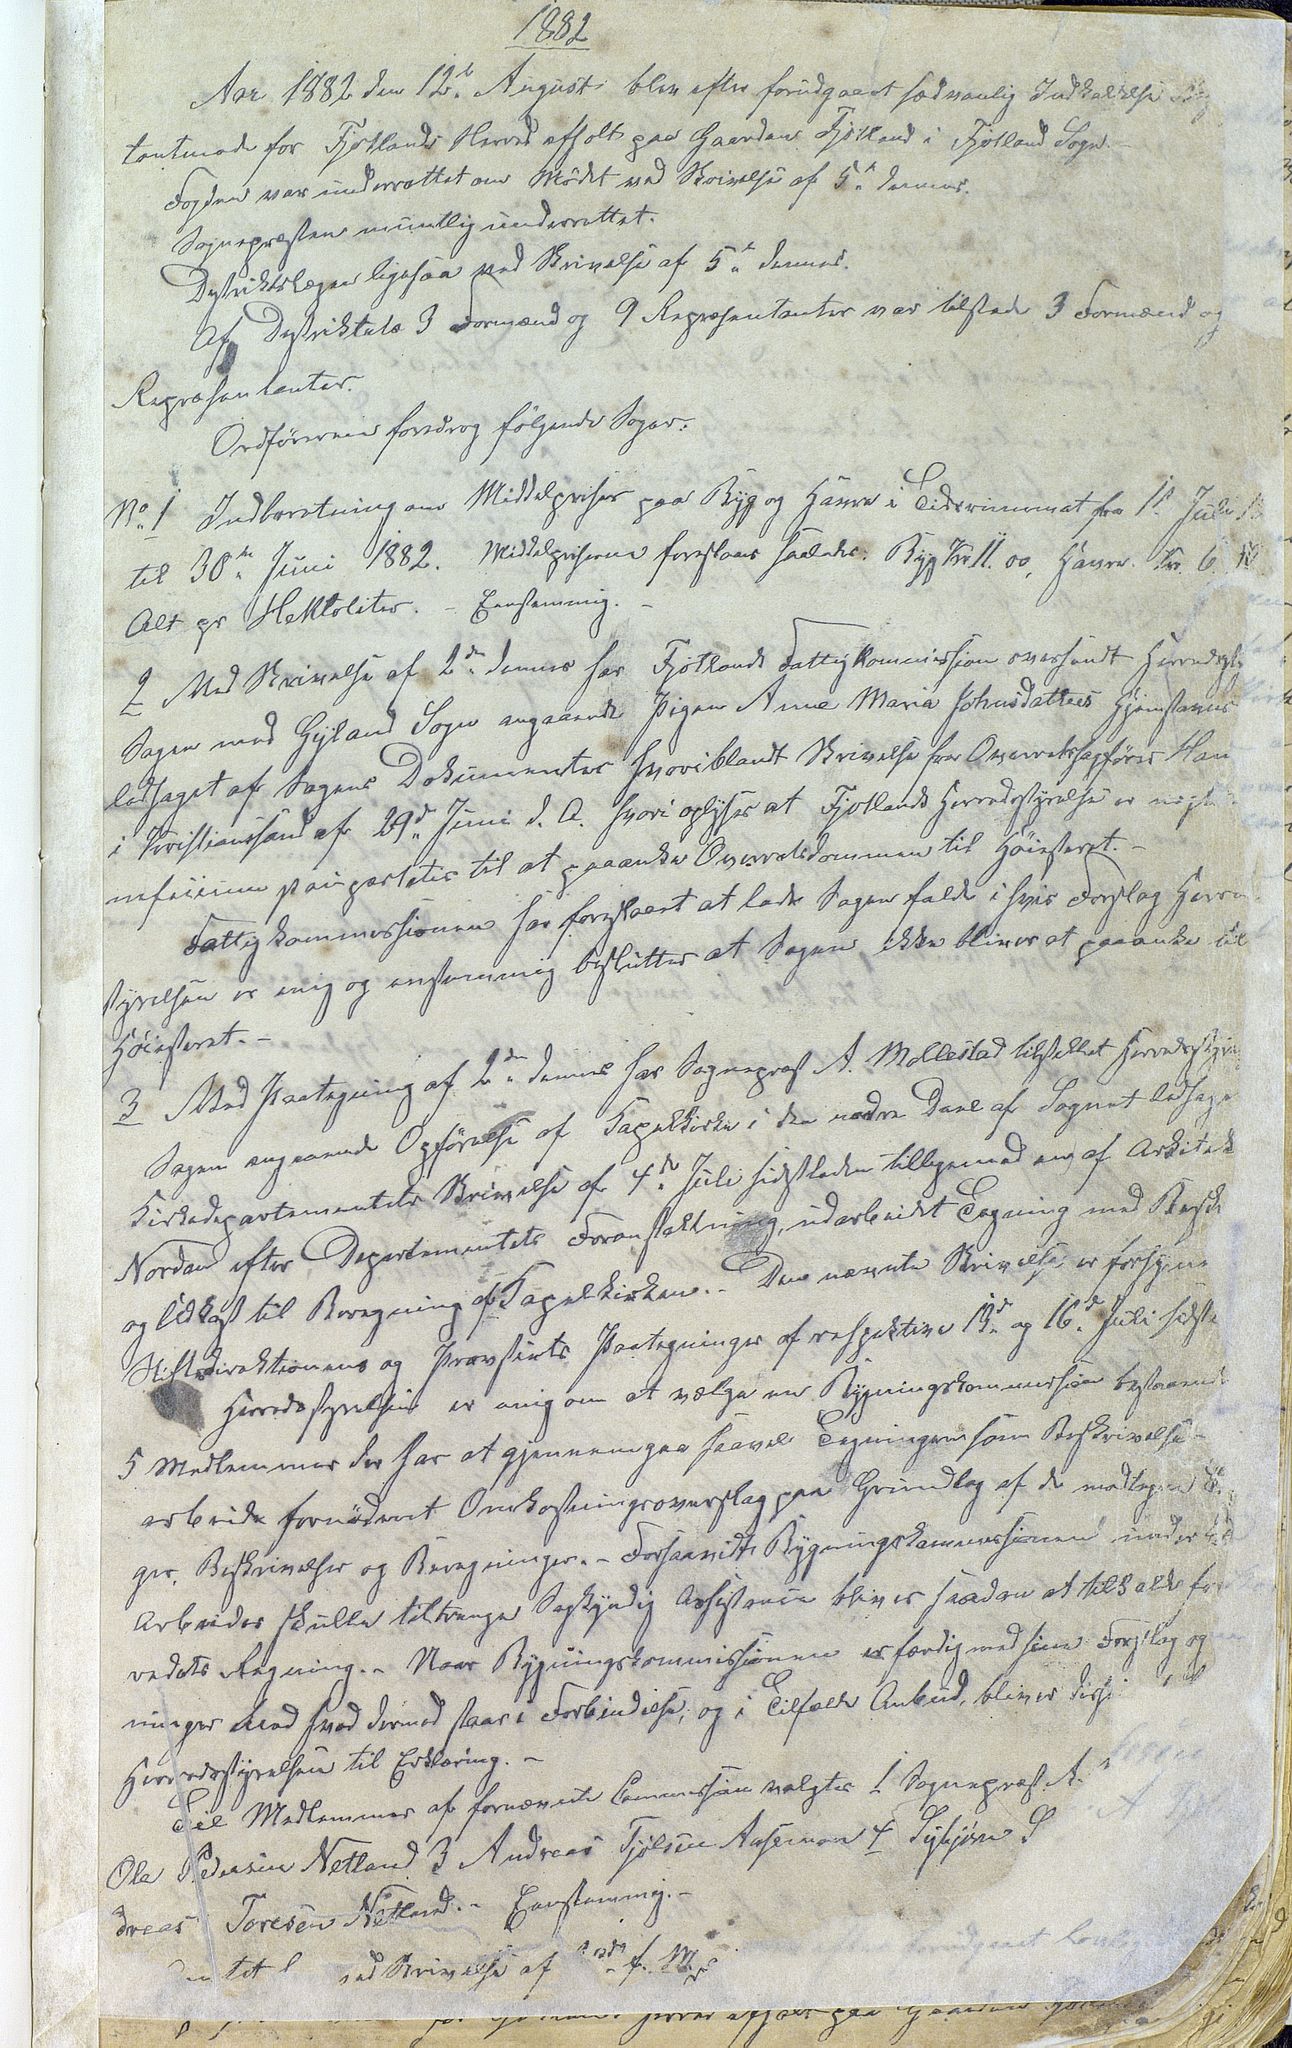 1882
Aar 1882 den 12te August blev efter forudgaaet sædvanlig Indkaldelse
tantmøde for Fjotlands Herred afholt paa Gaarden Fjotland i Fjotland Sogn.
Fogden var underrettet om Mødet ved Skrivelse af 5te dennes.
Sognepresten mundtlig underrettet.
Distriktslægen ligesaa ved Skrivelse af 5te dennes.
Af Distriktets 3 Formænd og 9 Repræsentanter var tilstede 3 Formænd og
Repræsentanter.
Ordføreren foredrog følgende Sager:
No 1 Indberetning om Middelpriser paa Byg og Havre i Tidsrummet fra 1ste Juli
til 30te Juni 1882. Middelpriserne foreslaaes saaledes: Byg Kr 11.00, Havre Kr. 6.
Alt pr Hektoliter. – Eenstemmig. –
2 Med Skrivelse af 2den dennes har Fjotlands Fattigkommission oversendt Herredssty
Sagen med Gyland Sogn angaaende Pigen Anne Maria Johnsdatters Hjemstavns
ledsaget af Sagens Dokumenter hvoriblandt Skrivelse fra Overretssagfører Han
i Kristianssand af 29de Juni d. A. hvori oplyses at Fjotlands Herredsstyrelse er
til at paaanke Overretsdommen til Høiesteret. –
Fattigkommissionen har foreslaaet at lade Sagen falde i hvis Forslag Herreds
styrelsen er enig og enstemmig beslutter at Sagen ikke bliver at paaanke til
Høiesteret. –
3 Med Paategning af 2den dennes har Sogneprest A. Mollestad tilstillet Herredsstyrel
Sagen angaaende Opførelse af Kapelkirke i den nedre Deel af Sognet ledsage
Kirkedepartementets Skrivelse af 4de Juli sidstleden tilligemed en af Arkitekt
Nordan efter Departementets Foranstaltning, udarbeidet Tegning med Besk
og Udkast til Beregning af Kapelkirken. – Den nævnte Skrivelse er forsynet
Stiftsdirektionens og Provstiets Paategninger af respektive 13de og 16de Juli sidste
Herredsstyrelsen er enig om at vælge en Bygningskommission bestaaende
5 Medlemmer der har at gjennemgaa saavel Tegningen som Beskrivelse
arbeide fornødent Omkostningsoverslag paa Grundlag af de modtagne
ger, Beskrivelser og Beregninger. – Forsaavidt Bygningskommissionen under
Arbeider skulle tiltrænge Sagkyndig Assistance bliver saadan at tilkalde for
redets Regning. – Naar Bygningskommissionen er færdig med sine Forslag og
ninger med hvad dermed staar i Forbindelse, og i Tilfælde Anbud, bliver disse
Herredsstyrelsen til Erklæring. –
Til Medlemmer af fornævnte Commission valgtes 1 Sogneprest A.
Ola Pedersen Netland 3 Andreas Tjølsen 4
dreas Toresen Netland. – Eenstemmig. –
ved Skrivelse af